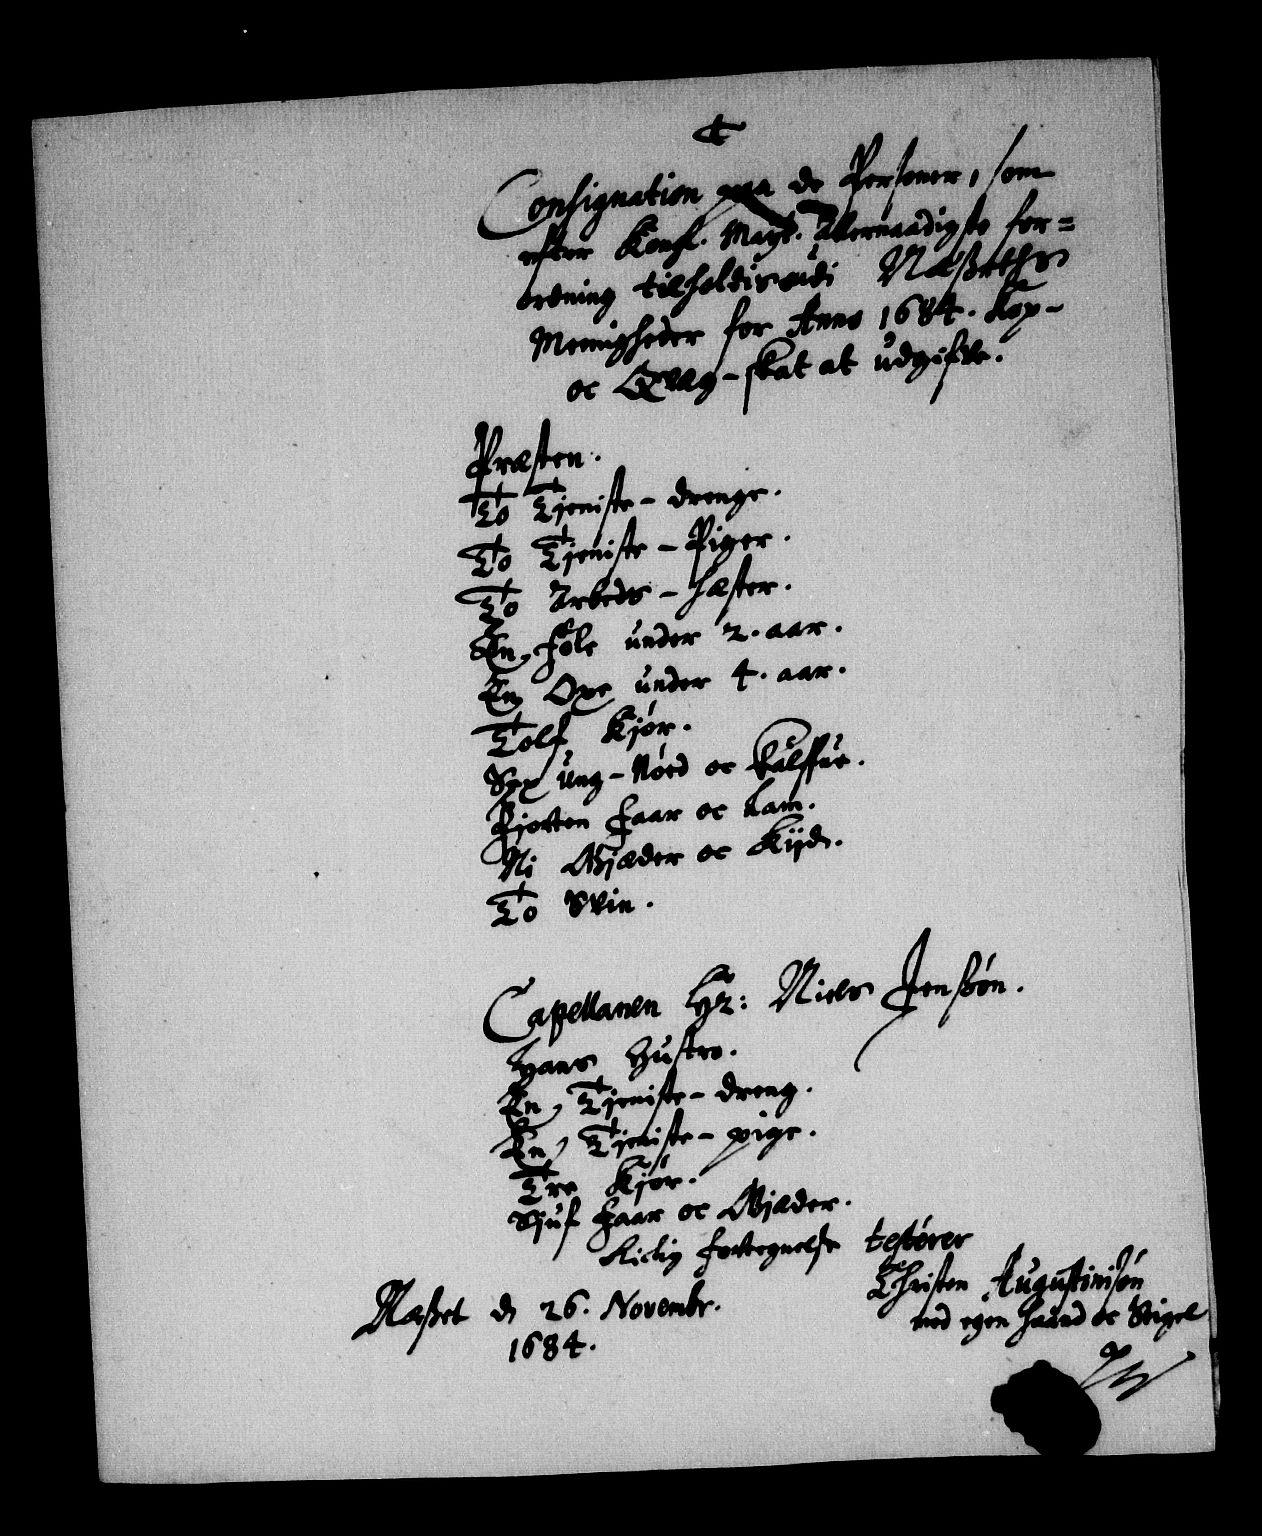 Consignation paa de Personer, som
efter Kongl. Mayt. Allernaadigste for=
ordning tilholdis udi Næsseths
Menigheder for Anno 1684. Kop-
oc Qvæg-skat at udgifve.
Præsten.
To Tjeniste-drenge.
To Tjeniste-Piger.
To Arbeds-Hæster.
En Fole under 2. aar.
En Oxe under 4. aar.
Tolf Kjør.
Sex Ung-Nød oc Kalffue.
Fjorten Faar oc Lam.
Ni Gjæder oc Kijd.
To Svin.
Capellanen Hr: Niels Jensøn.
Hans Hustro.
En Tjeniste-dreng.
En Tjeniste-pige.
Tre Kjør.
Sjuf Faar oc Gjæder.
Rictig Fortegnelse testerer
Christen Augustinisøn
med egen Haand oc Seigel
Næsset d 26. Novembr.
1684.